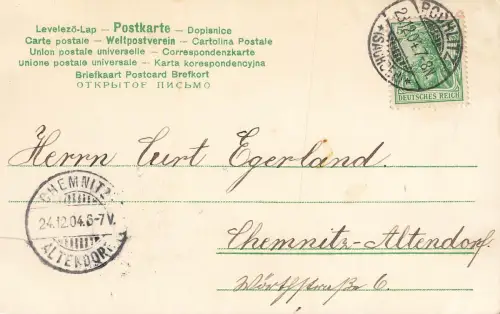 Levelező-Lap — Postkarte — Dopisnice
Carte postale — Weltpostverein — Cartolina Postale
Union postale universelle — Correspondenzkarte
Unione postale universale — Karta korespondencyjna
Briefkaart Postcard Brefkort
ОТКРЫТОЕ ПИСЬМО
DEUTSCHES REICH
Herrn Curt Egerland.
CHEMNITZ-
24.12.04.6-7V.
ALTENDORF
Chemnitz-Altendorf.
Wörthstraße 6.